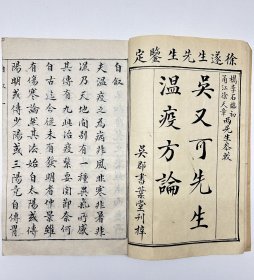 徐遂生先生鑒定
檇李石臨初
甬江徐天章
兩先生參較
吳又可先生
溫疫方論
吳郡書業堂刊梓
自敘
夫溫疫之為病非風非寒非暑非
濕乃天地間別有一種異氣所感
其傳有九此治疫緊要關節奈何
自古迄今從未有發明者仲景雖
有傷寒論然其法始自太陽或傳
陽明或傳少陽或三陽竟自傳胃